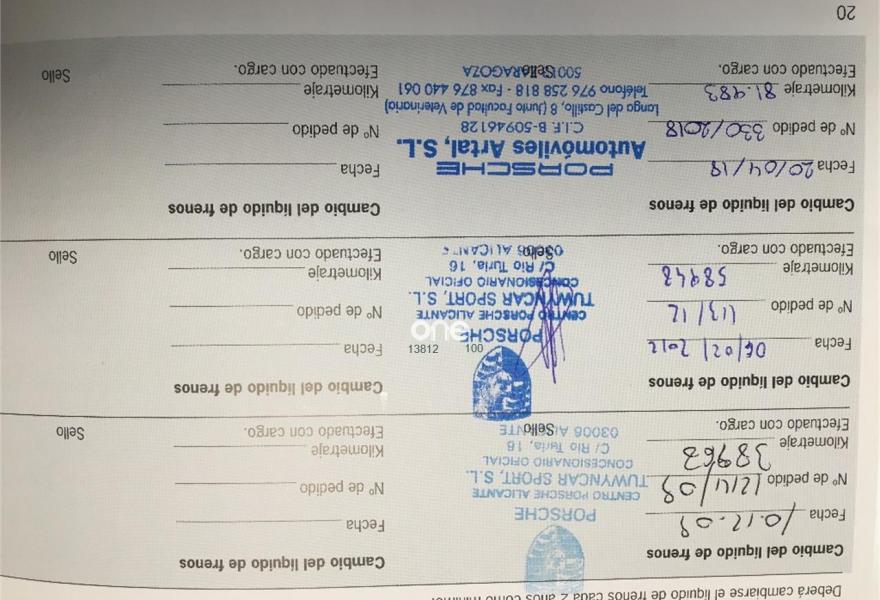 Deberá cambiarse el líquido de frenos cada 2 años como mínimo.
Cambio del líquido de frenos
Fecha 10.12.09
Nº de pedido 1214/09
Kilometraje
Efectuado con cargo.
Sello
PORSCHE
CENTRO PORSCHE ALICANTE
TUWYNCAR SPORT, S.L.
CONCESIONARIO OFICIAL
C/ Rio Turia, 16
03006 ALICANTE
Cambio del líquido de frenos
Fecha
Nº de pedido
Kilometraje
Efectuado con cargo.
Sello
Cambio del líquido de frenos
Fecha 06/02/2012
Nº de pedido 113/12
Kilometraje 58948
Efectuado con cargo.
Sello
PORSCHE
CENTRO PORSCHE ALICANTE
TUWYNCAR SPORT, S.L.
CONCESIONARIO OFICIAL
C/ Rio Turia, 16
03006 ALICANTE
Cambio del líquido de frenos
Fecha
Nº de pedido
Kilometraje
Efectuado con cargo.
Sello
one
13812 100
Cambio del líquido de frenos
Fecha 20/04/18
Nº de pedido 330/2018
Kilometraje 81.483
Efectuado con cargo.
Sello
PORSCHE
Automóviles Artal, S.L.
C.I.F. B-50946128
Longa del Castillo, 8 (Junto Facultad de Veterinaria)
Teléfono 976 258 818 - Fax 876 440 061
ZARAGOZA
Cambio del líquido de frenos
Fecha
Nº de pedido
Kilometraje
Efectuado con cargo.
Sello
20